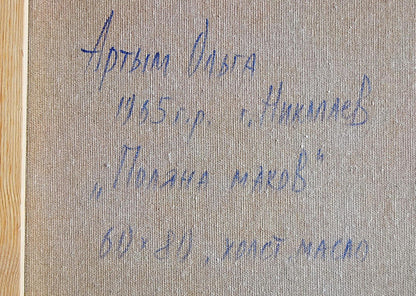 Артым Ольга
1965 г.р. г. Николаев
„Поляна маков"
60×80, холст, масло